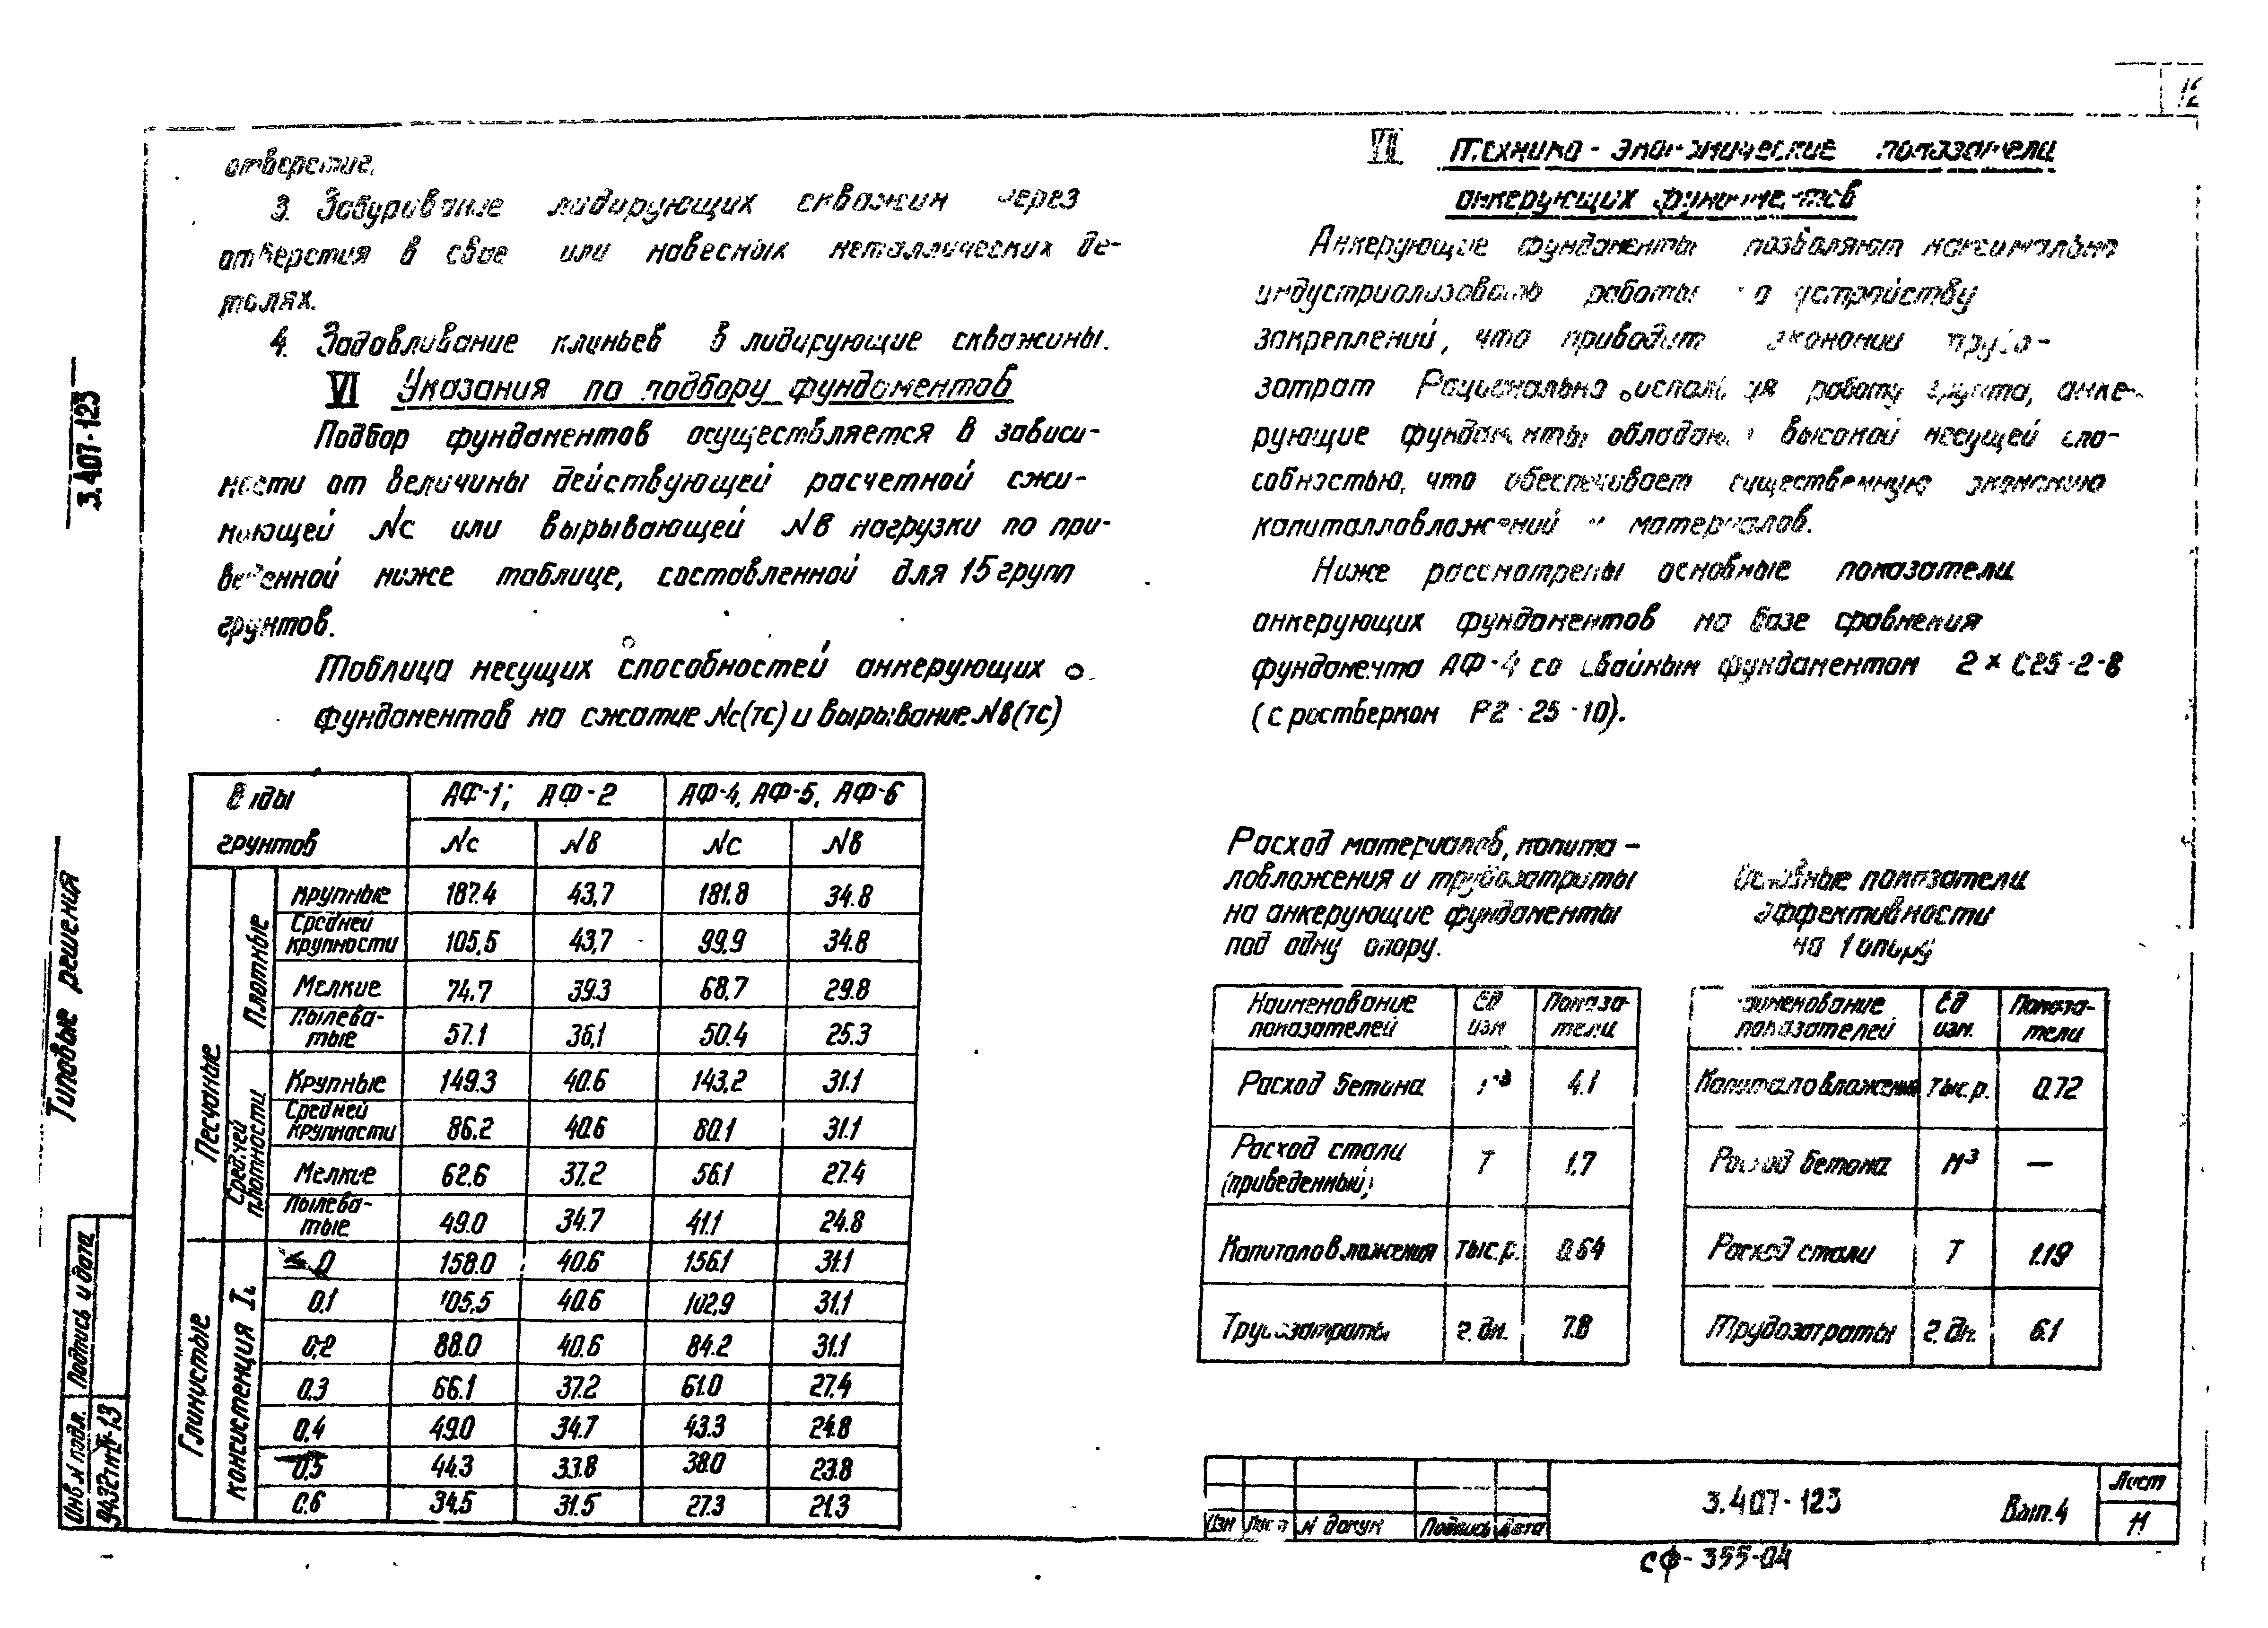 12
отверстие.
3. Забуривание лидирующих скважин через
отверстия в свае или навесных металлических де-
талях.
4. Задавливание клиньев в лидирующие скважины.
VI Указания по подбору фундаментов
Подбор фундаментов осуществляется в зависи-
мости от величины действующей расчетной сжи-
мающей Nс или вырывающей Nв нагрузки по при-
веденной ниже таблице, составленной для 15 групп
грунтов.
Таблица несущих способностей анкерующих
фундаментов на сжатие Nс(тс) и вырывание Nв(тс)
Виды грунтов АФ-1; АФ-2 АФ-4, АФ-5, АФ-6
Nс Nв Nс Nв
Песчаные
Плотные
крупные 187.4 43,7 181.8 34.8
Средней крупности 105,5 43,7 99.9 34.8
Мелкие 74.7 39.3 68.7 29.8
Пылева-тые 57.1 36,1 50.4 25.3
Средней плотности
Крупные 149.3 40.6 143.2 31.1
Средней крупности 86.2 40.6 80.1 31.1
Мелкие 62.6 37.2 56.1 27.4
Пылева-тые 49.0 34.7 41.1 24.8
Глинистые
консистенция IL
≤ 0 158.0 40.6 156.1 31.1
0.1 105.5 40.6 102.9 31.1
0,2 88.0 40.6 84.2 31.1
0.3 66.1 37.2 61.0 27.4
0.4 49.0 34.7 43.3 24.8
0.5 44.3 33.8 38.0 23.8
0.6 34,5 31.5 27.3 21.3
VII Технико-экономические показатели
анкерующих фундаментов
Анкерующие фундаменты позволяют максимально
индустриализовать работы по устройству
закреплений, что приводит экономии трудо-
затрат Рационально используя работу грунта, анке-
рующие фундаменты обладают высокой несущей спо-
собностью, что обеспечивает существенную экономию
капиталловложений и материалов.
Ниже рассмотрены основные показатели
анкерующих фундаментов на базе сравнения
фундамента АФ-4 со свайным фундаментом 2×С25-2-8
(с ростверком Р2-25-10).
Расход материалов, капита-
ловложения и трудозатраты
на анкерующие фундаменты
под одну опору.
Наименование показателей Ед изм Показа-тели
Расход бетона м³ 4.1
Расход стали (приведенный) Т 1,7
Капиталовложения тыс.р. 0.64
Трудозатраты г.дн. 7.8
Основные показатели
эффективности
на 1 опору
Наименование показателей Ед изм. Показа-тели
Капиталовложения тыс.р. 0.72
Расход бетона м³ —
Расход стали Т 1.19
Трудозатраты г.дн. 6.1
Изм Лист N докум Подпись Дата
3.407-123 Вып.4
Лист
11
СФ-355-04
3.407-123
Типовые решения
Подпись и дата
Инв.N подл.
9432тм-13